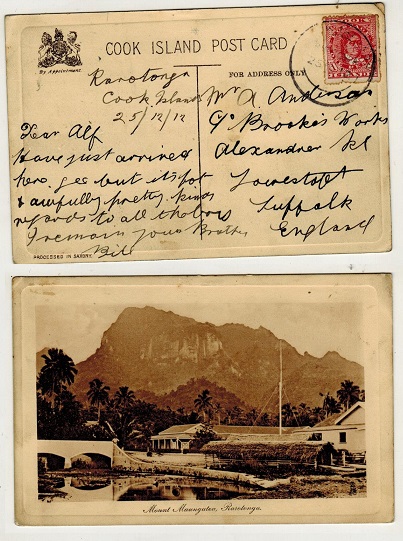 By Appointment.
COOK ISLAND POST CARD
FOR ADDRESS ONLY
Rarotonga
Cook Islands
25/12/12
Dear Alf
Have just arrived
here gee but its hot
& awfully pretty. kind
regards to all the boys
I remain your Brother
Bill
Mr A. Anderson
C/o Brooke's Works
Alexander Rd
Lowestoft
Suffolk
England
PROCESSED IN SAXONY.
Mount Maungatea, Rarotonga.